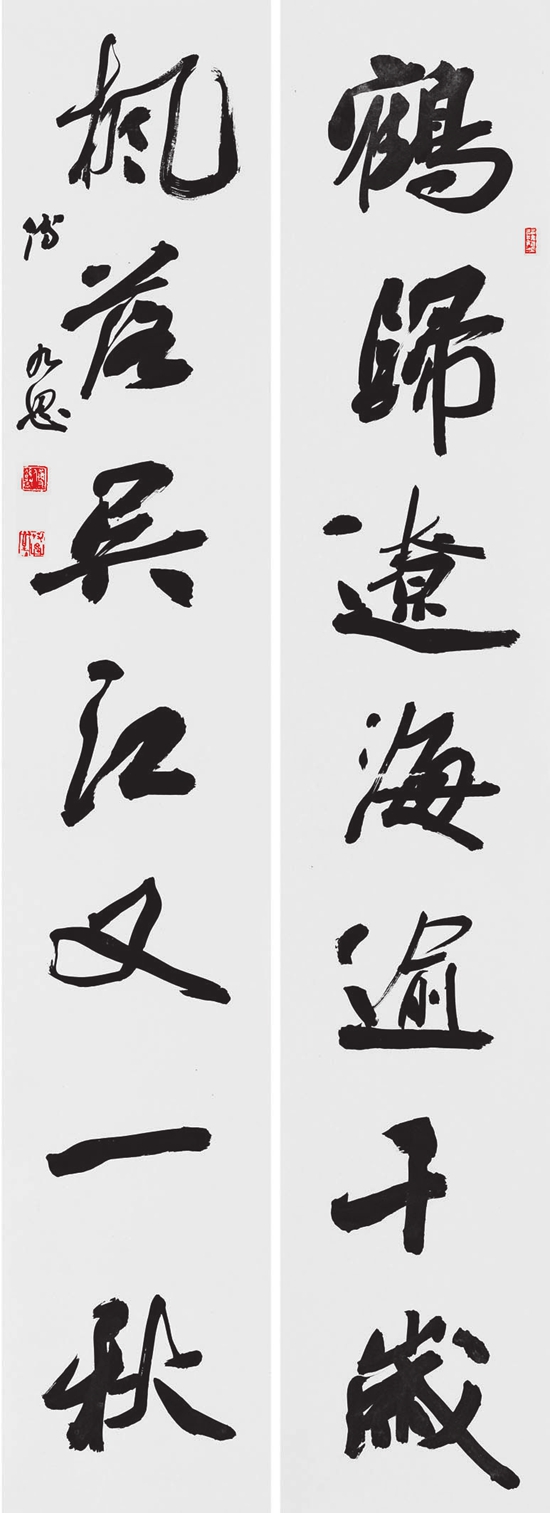 鶴歸遼海逾千歲
楓落吳江又一秋
傅九思